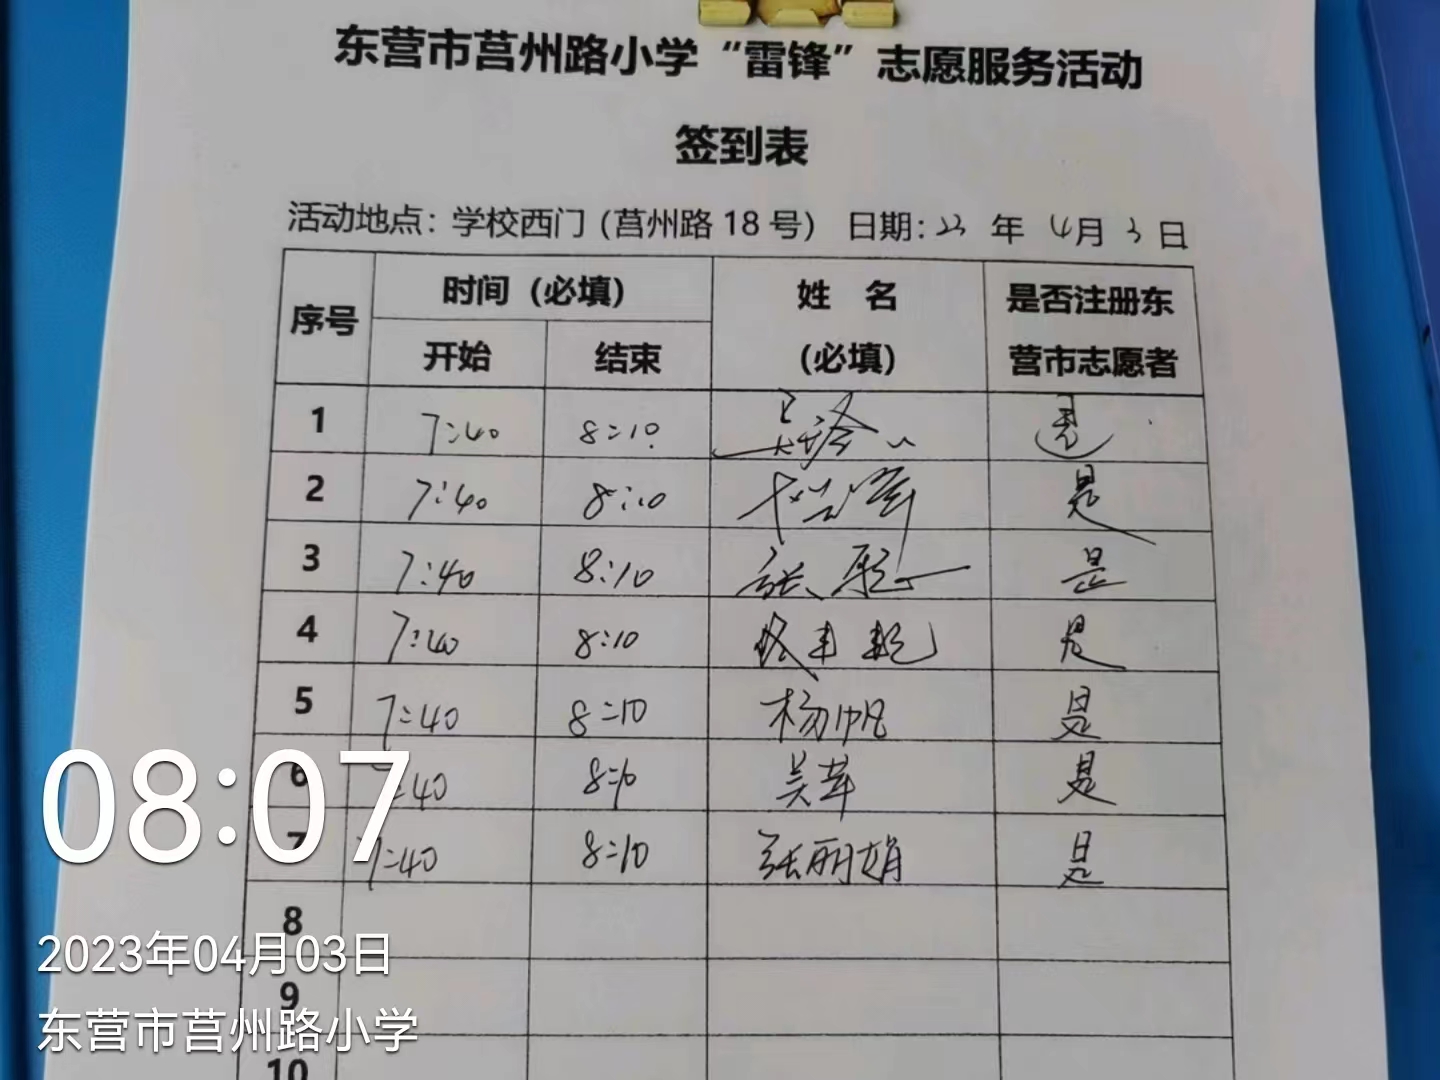 东营市莒州路小学“雷锋”志愿服务活动
签到表
活动地点：学校西门（莒州路18号） 日期：23年4月3日
序号 时间（必填） 姓 名（必填） 是否注册东营市志愿者
开始 结束
1 7:40 8:10
2 7:40 8:10 是
3 7:40 8:10 张 是
4 7:40 8:10 是
5 7:40 8:10 杨帆 是
6 7:40 8:10 是
7 7:40 8:10 张丽娟 是
8
9
10
08:07
2023年04月03日
东营市莒州路小学